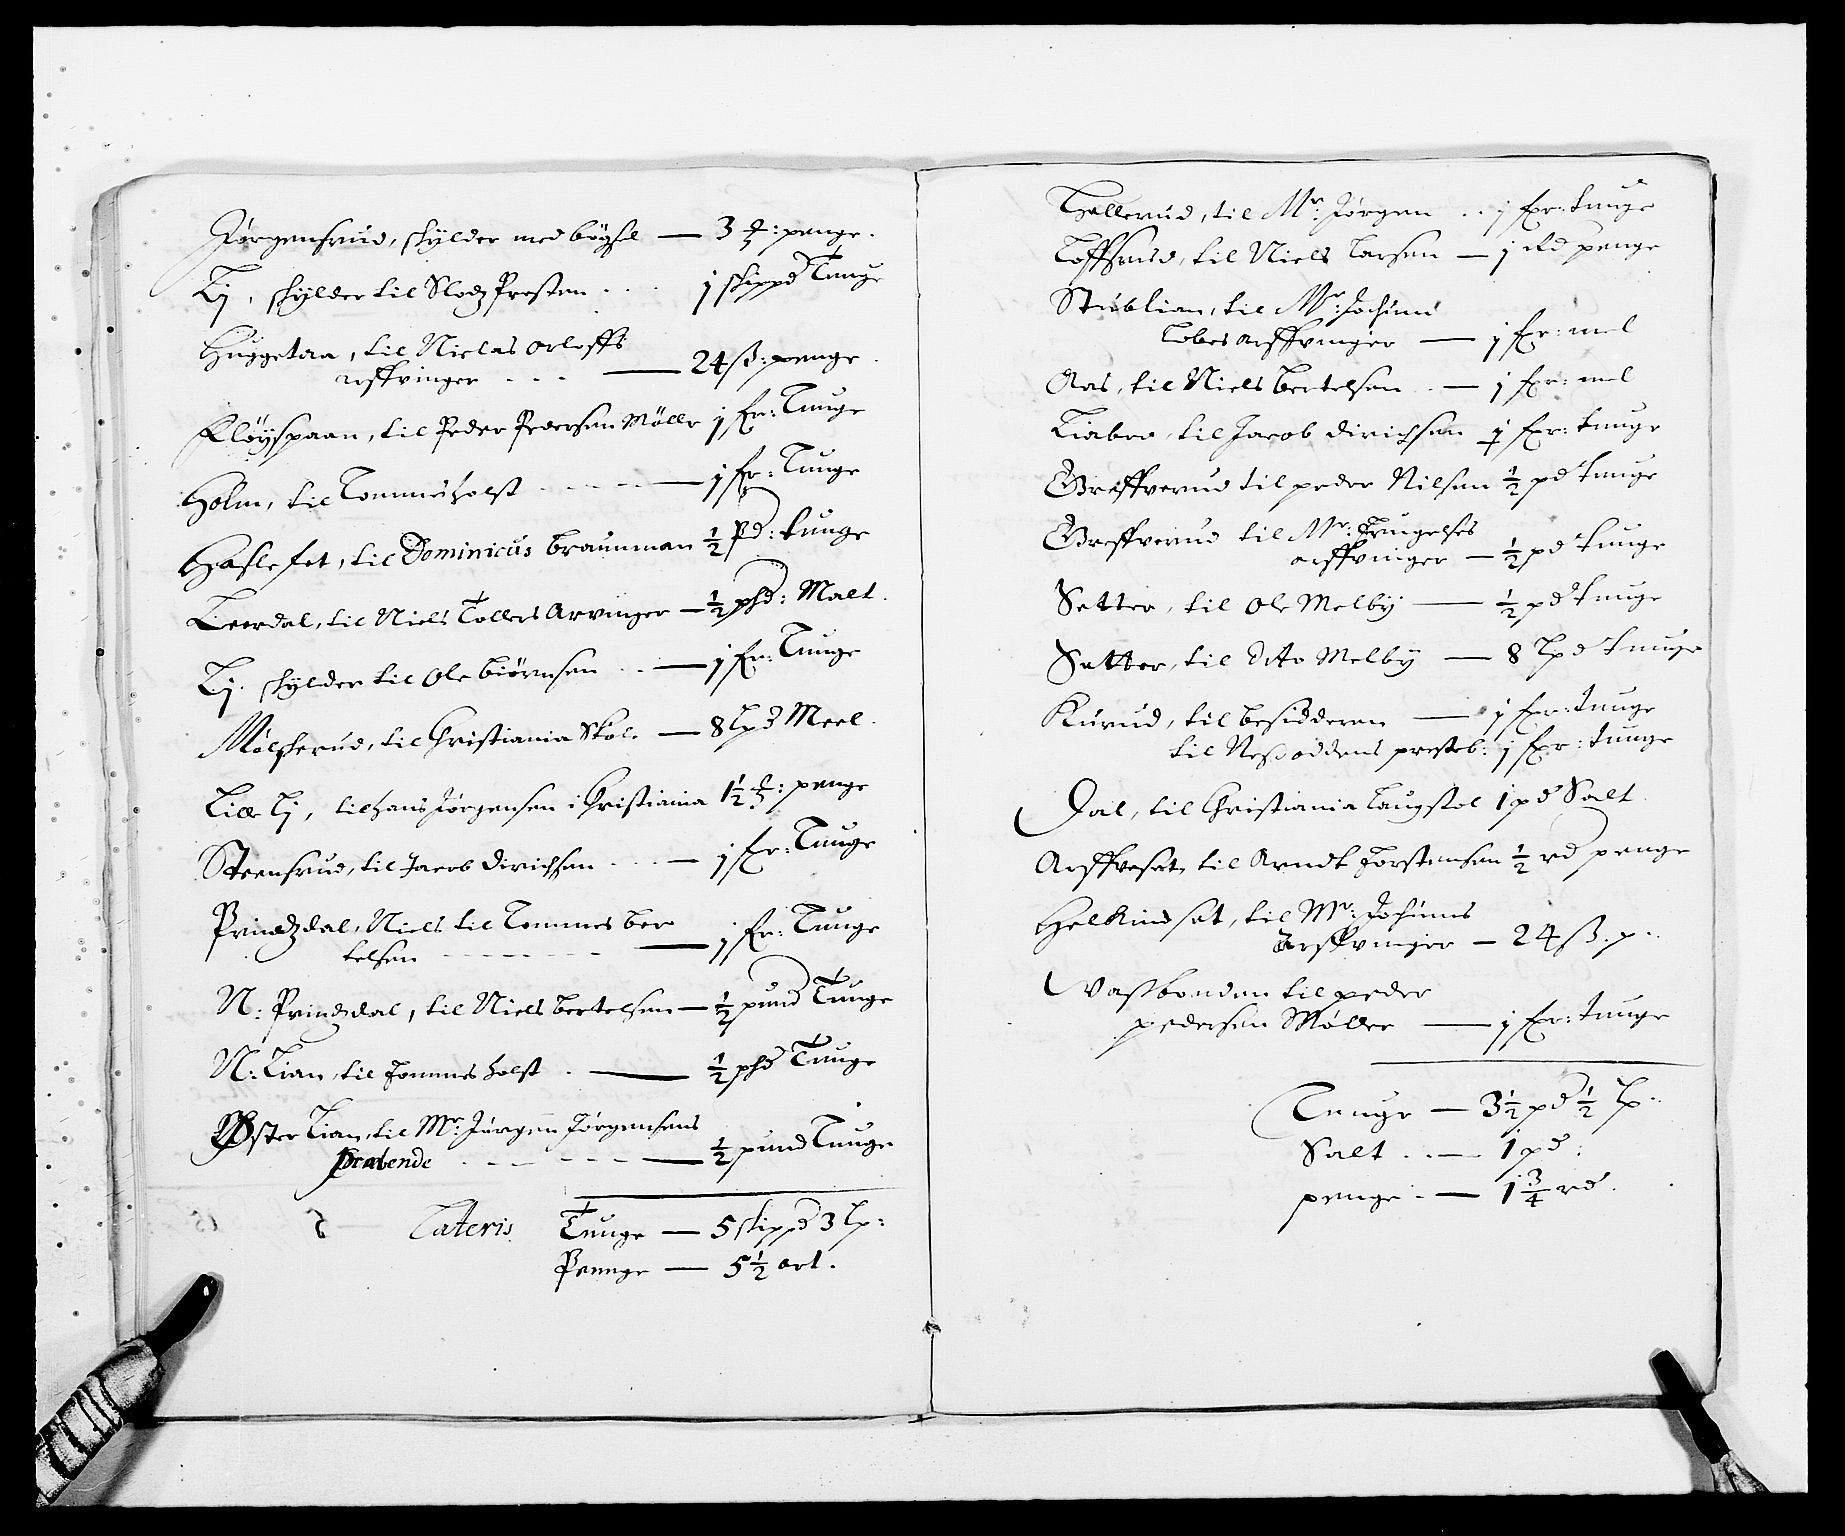 Jørgensrud, skylder med bøgsel — 3 ₰: penge.
Lj, skylder til Slodz Presten . . . j skippd Tunge
Huggetaa, til Nielas Orloffs
arffvinger - - - — 24 ß: penge.
Fløyspaan, til Peder Pedersen Møller j fr: Tunge
Holm, til Tommes Holst - - - — j fr: Tunge
Hasleset, til Dominicus Braunman ½ Pd: tunge
Leerdal, til Niels Tollers Arvinger — ½ phd: Malt.
Lj. skylder til Ole Biørnsen . . — j fr: Tunge
Mølcherud, til Christiania Skole — 8 lpd Meel.
Lille Lj, til Hans Jørgensen i Christiania 1½ ₰: penge
Steensrud, til Jacob Dirichsen . . . — j fxr: Tunge
Prindzdal, Niels til Tommes Ber
telsen - - - - — j fr: Tunge
N: Prindzdal, til Niels Bertelsen — ½ pund Tunge
N: Lian, til Tommes Holst . — ½ phd Tunge
Øster Lian, til Mr. Jørgen Jørgensens
Præbende - - - — ½ pund Tunge
Lateris Tunge — 5 skippd 3 lp:
Penge — 5½ ort.
Hellerud, til Mr. Jørgen . . j fxr: tunge
Toffsrud, til Niels Larsen — j Rd penge
Stublian, til Mr: Jochum
Lobes arffvinger — j fxr: mel
Aas, til Niels Bertelsen . — j fxr: mel
Liabro, til Jacob Dirichsen j fxr: tunge
Greffverud til peder Nilsen ½ pd tunge
Greffverud til Mr: Trugelses
arffvinger — ½ pd tunge
Setter, til Ole Melby — ½ pd tunge
Setter, til dito Melby — 8 lpd tunge
Kurud, til besidderen — j fxr: tunge
til Nesoddens presteb: j fxr: tunge
Dal, til Christiania Laugstol 1 pd Salt.
Arffveset, til Arndt Torstensen ½ rd penge
Helkindset, til Mr: Jochums
Arffvinger — 24 ß. p:.
Vassbonden til peder
pedersen Møller — j fxr: tunge
Tunge — 3½ pd ½ lp.
Salt . . — 1 pd:
penge . — 1¾ rd.